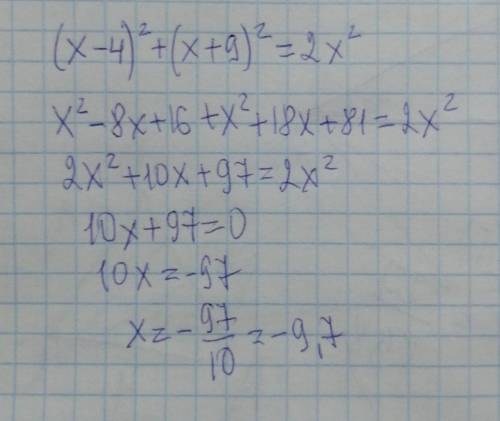 (x-4)²+(x+9)²=2x²
x²-8x+16+x²+18x+81=2x²
2x²+10x+97=2x²
10x+97=0
10x=-97
x=-97/10=-9,7